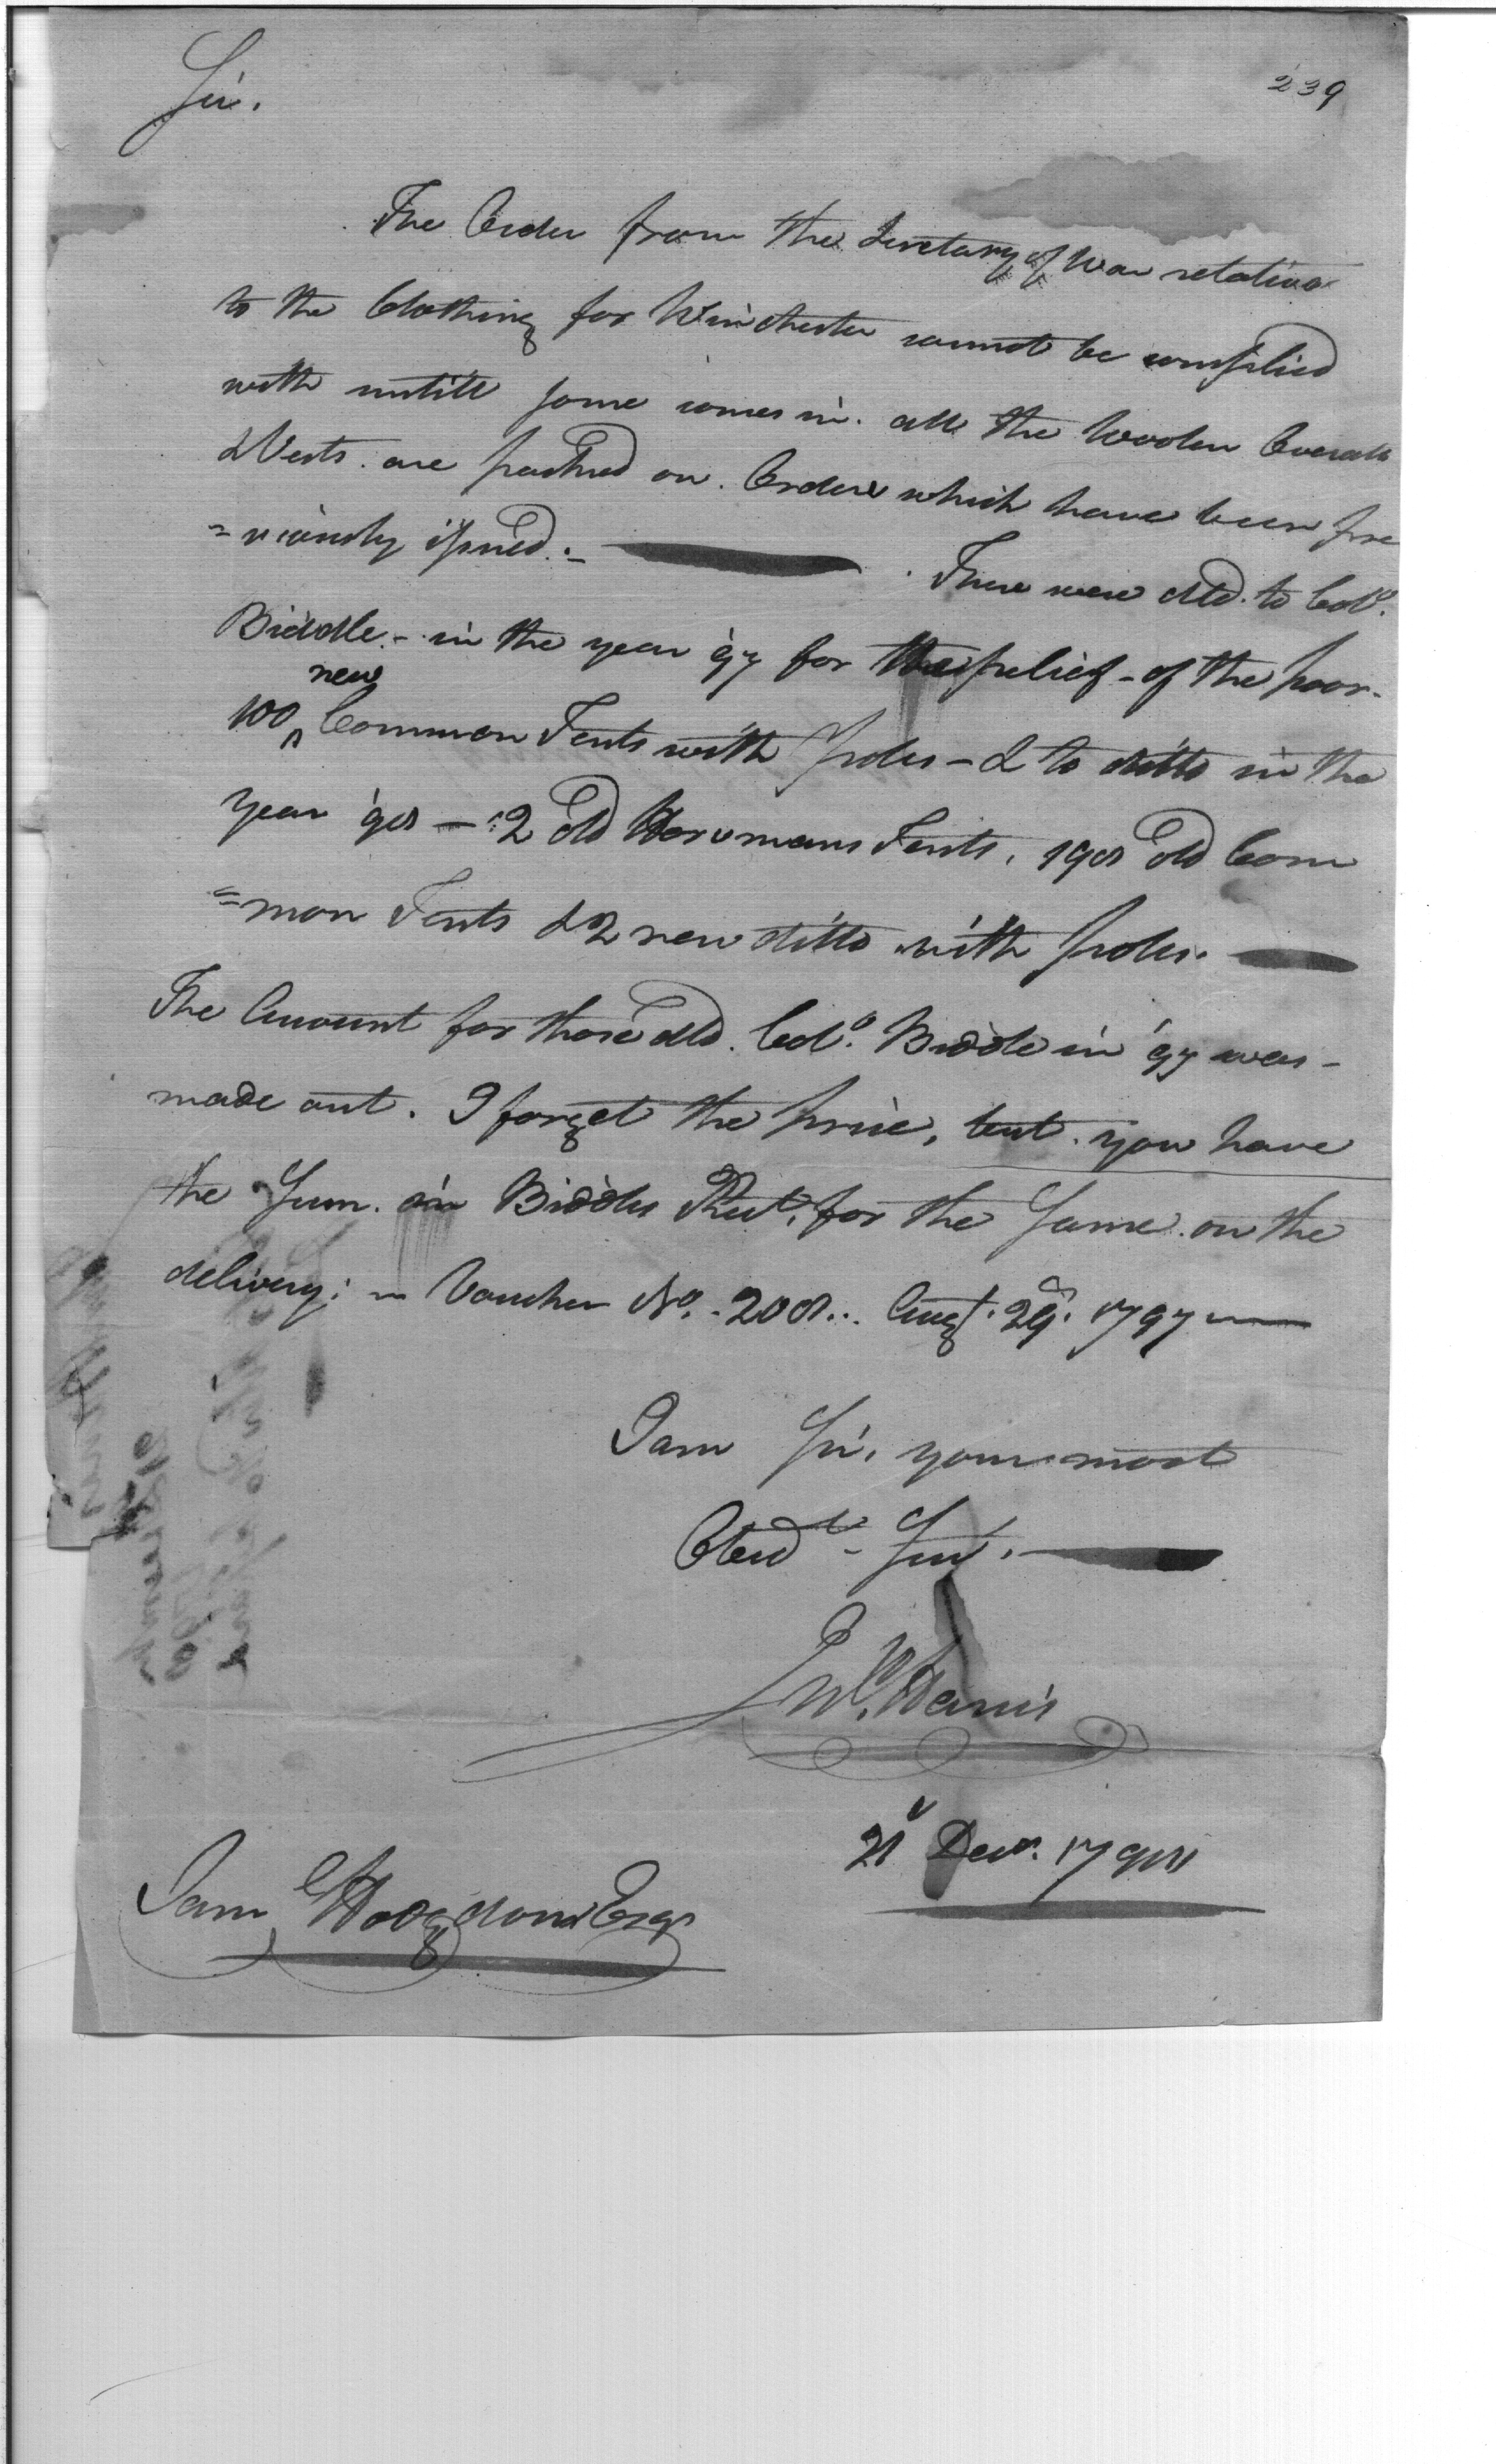 239
Sir.
The Order from the Secretary of War relative
to the Clothing for Winchester cannot be complied
with untill some comes in. all the Woolen Overalls
& Vests. are packed on. Orders which have been pre
=viously issued.-
There were dld. to Colo.
Biddle - in the year 97 for the relief - of the poor -
new
100 ^ Common Tents with poles - & to ditto in the
year '98 - 2 old Horsemans Tents, 198 old Com
=mon Tents & 2 new ditto with poles.
The Amount for those dld. Colo. Biddle in '97 was -
made out. I forget the price, but you have
the Sum. in Biddles Rect. for the same. on the
delivery: - Voucher No. 208.. Augt. 29. 1797
I am Sir, your most
Obedt - Servt.
Jno. Harris
21 Decr. 1798
Saml Hodgdon Esqr